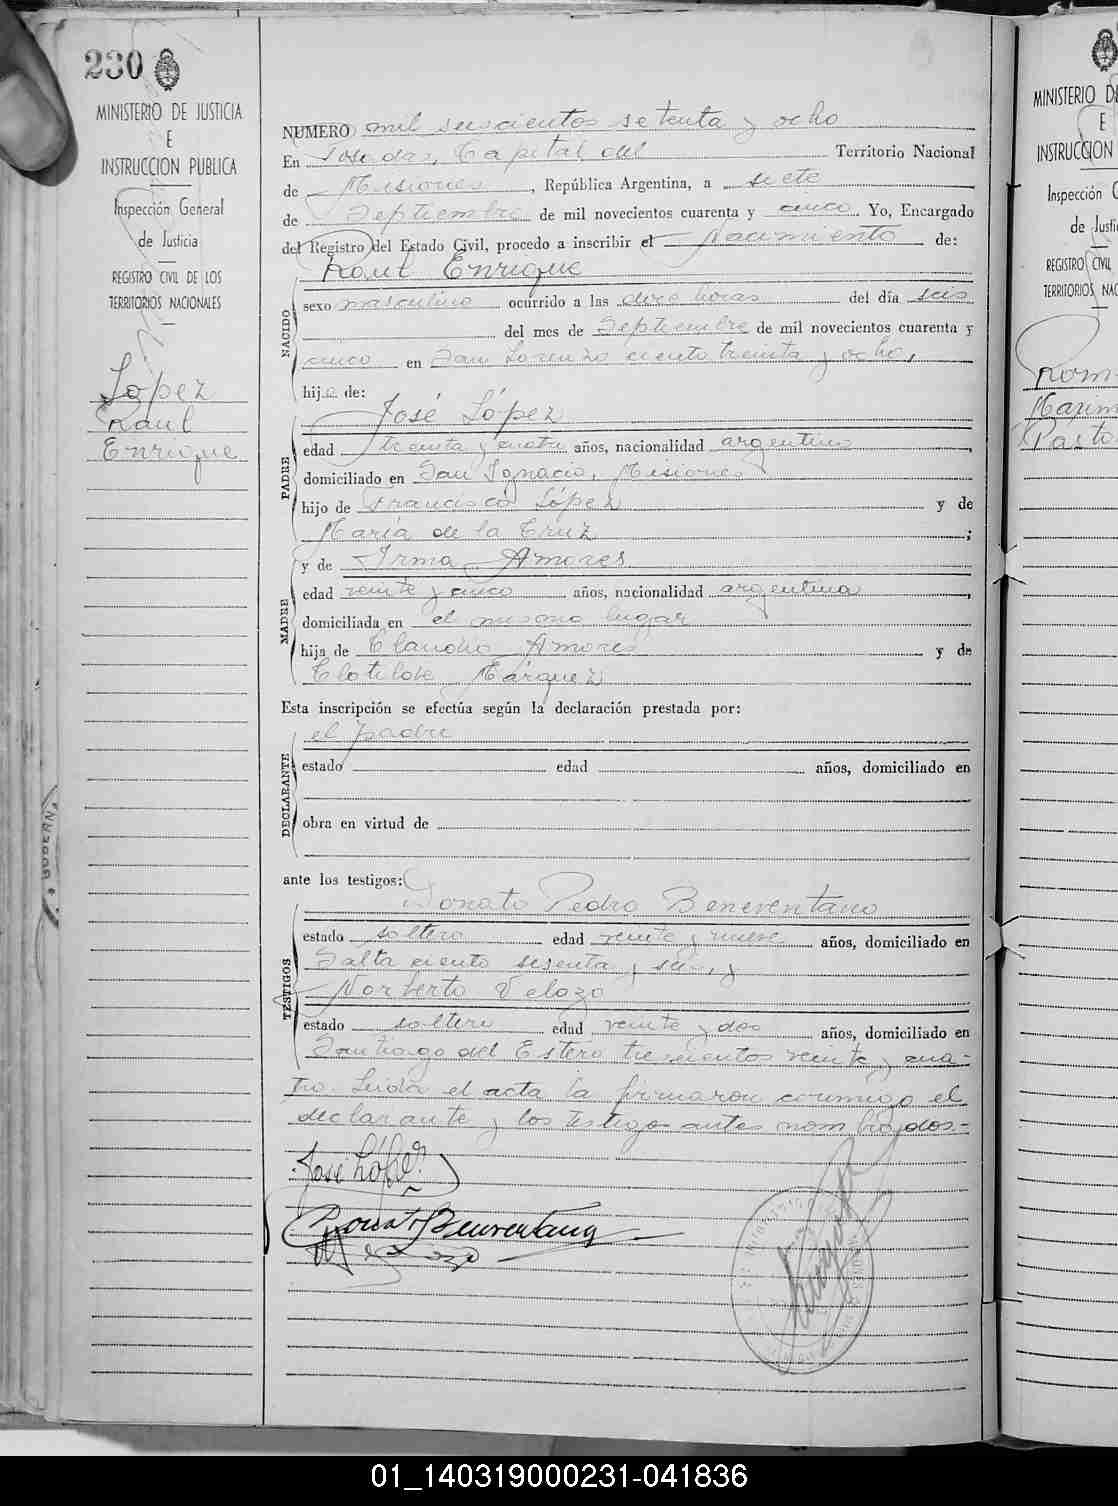 230
MINISTERIO DE JUSTICIA
E
INSTRUCCION PUBLICA
Inspección General
de Justicia
REGISTRO CIVIL DE LOS
TERRITORIOS NACIONALES
López
Raul
Enrique
NUMERO mil seiscientos setenta y ocho
En Posadas, Capital del Territorio Nacional
de Misiones, República Argentina, a siete
de Septiembre de mil novecientos cuarenta y cinco. Yo, Encargado
del Registro del Estado Civil, procedo a inscribir el Nacimiento de:
Raul Enrique
NACIDO
sexo masculino ocurrido a las doce horas del día seis
del mes de Septiembre de mil novecientos cuarenta y
cinco en San Lorenzo ciento treinta y ocho,
hijo de:
José López
PADRE
edad treinta y cuatro años, nacionalidad argentino,
domiciliado en San Ignacio, Misiones
hijo de Francisco López y de
María de la Cruz;
y de Irma Amores
MADRE
edad veinte y cinco años, nacionalidad argentina,
domiciliada en el mismo lugar
hija de Claudio Amores y de
Clotilde Márquez
Esta inscripción se efectúa según la declaración prestada por:
el padre
DECLARANTE
estado edad años, domiciliado en
obra en virtud de
ante los testigos:
Donato Pedro Beneventano
TESTIGOS
estado soltero edad veinte y nueve años, domiciliado en
Salta ciento sesenta y seis, y
Norberto Velazo
estado soltero edad veinte y dos años, domiciliado en
Santiago del Estero trescientos veinte y cua-
tro. Leída el acta la firmaron conmigo el
declarante y los testigos antes nombrados.-
José López
Donato Beneventano
MINISTERIO D
E
INSTRUCCION
Inspección G
de Justi
REGISTRO CIVIL
TERRITORIOS NAC
Rom
Marim
Pasto
01_140319000231-041836